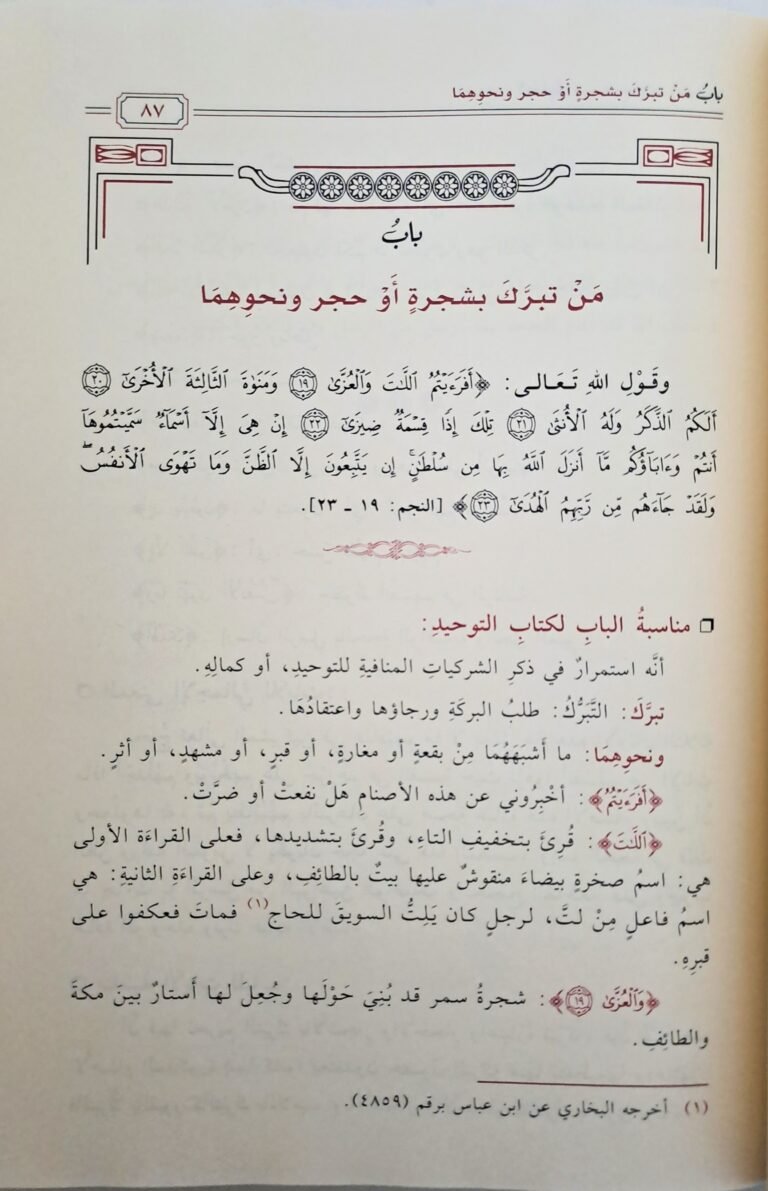 بابُ مَنْ تبرَّكَ بشجرةٍ أَوْ حجر ونحوِهِمَا
٨٧
بابٌ
مَنْ تبرَّكَ بشجرةٍ أَوْ حجر ونحوِهِمَا
وقَوْلِ اللهِ تَعَالى: ﴿أَفَرَءَيْتُمُ ٱللَّٰتَ وَٱلْعُزَّىٰ ١٩ وَمَنَوٰةَ ٱلثَّالِثَةَ ٱلْأُخْرَىٰٓ ٢٠
أَلَكُمُ ٱلذَّكَرُ وَلَهُ ٱلْأُنثَىٰ ٢١ تِلْكَ إِذًا قِسْمَةٌ ضِيزَىٰٓ ٢٢ إِنْ هِىَ إِلَّآ أَسْمَآءٌ سَمَّيْتُمُوهَآ
أَنتُمْ وَءَابَآؤُكُم مَّآ أَنزَلَ ٱللَّهُ بِهَا مِن سُلْطَٰنٍ ۚ إِن يَتَّبِعُونَ إِلَّا ٱلظَّنَّ وَمَا تَهْوَى ٱلْأَنفُسُ ۖ
وَلَقَدْ جَآءَهُم مِّن رَّبِّهِمُ ٱلْهُدَىٰٓ ٢٣﴾ [النجم: ١٩ ـ ٢٣].
❒ مناسبةُ البابِ لكتابِ التوحيدِ:
أنَّه استمرارٌ في ذكرِ الشركياتِ المنافيةِ للتوحيدِ، أو كمالِهِ.
تبرَّكَ: التَّبَرُّكُ: طلبُ البركَةِ ورجاؤها واعتقادُهَا.
ونحوِهِمَا: ما أَشبَهَهُمَا مِنْ بقعةٍ أو مغارةٍ، أو قبرٍ، أو مشهدٍ، أو أثرٍ.
﴿أَفَرَءَيْتُمُ﴾: أخْبِرُوني عن هذه الأصنامِ هَلْ نفعتْ أو ضرَّتْ.
﴿ٱللَّٰتَ﴾: قُرِئَ بتخفيفِ التاءِ، وقُرئَ بتشديدها، فعلى القراءَة الأولى
هي: اسمُ صخرةٍ بيضاءَ منقوشٌ عليها بيتٌ بالطائِفِ، وعلى القراءَةِ الثانيةِ: هي
اسمُ فاعلٍ مِنْ لتَّ، لرجلٍ كان يَلِتُّ السويقَ للحاج(١) فماتَ فعكفوا على
قبرِهِ.
﴿وَٱلْعُزَّىٰ ١٩﴾: شجرةُ سمر قد بُنِيَ حَوْلَها وجُعِلَ لها أَستارٌ بينَ مكةَ
والطائِفِ.
(١) أخرجه البخاري عن ابن عباس برقم (٤٨٥٩).